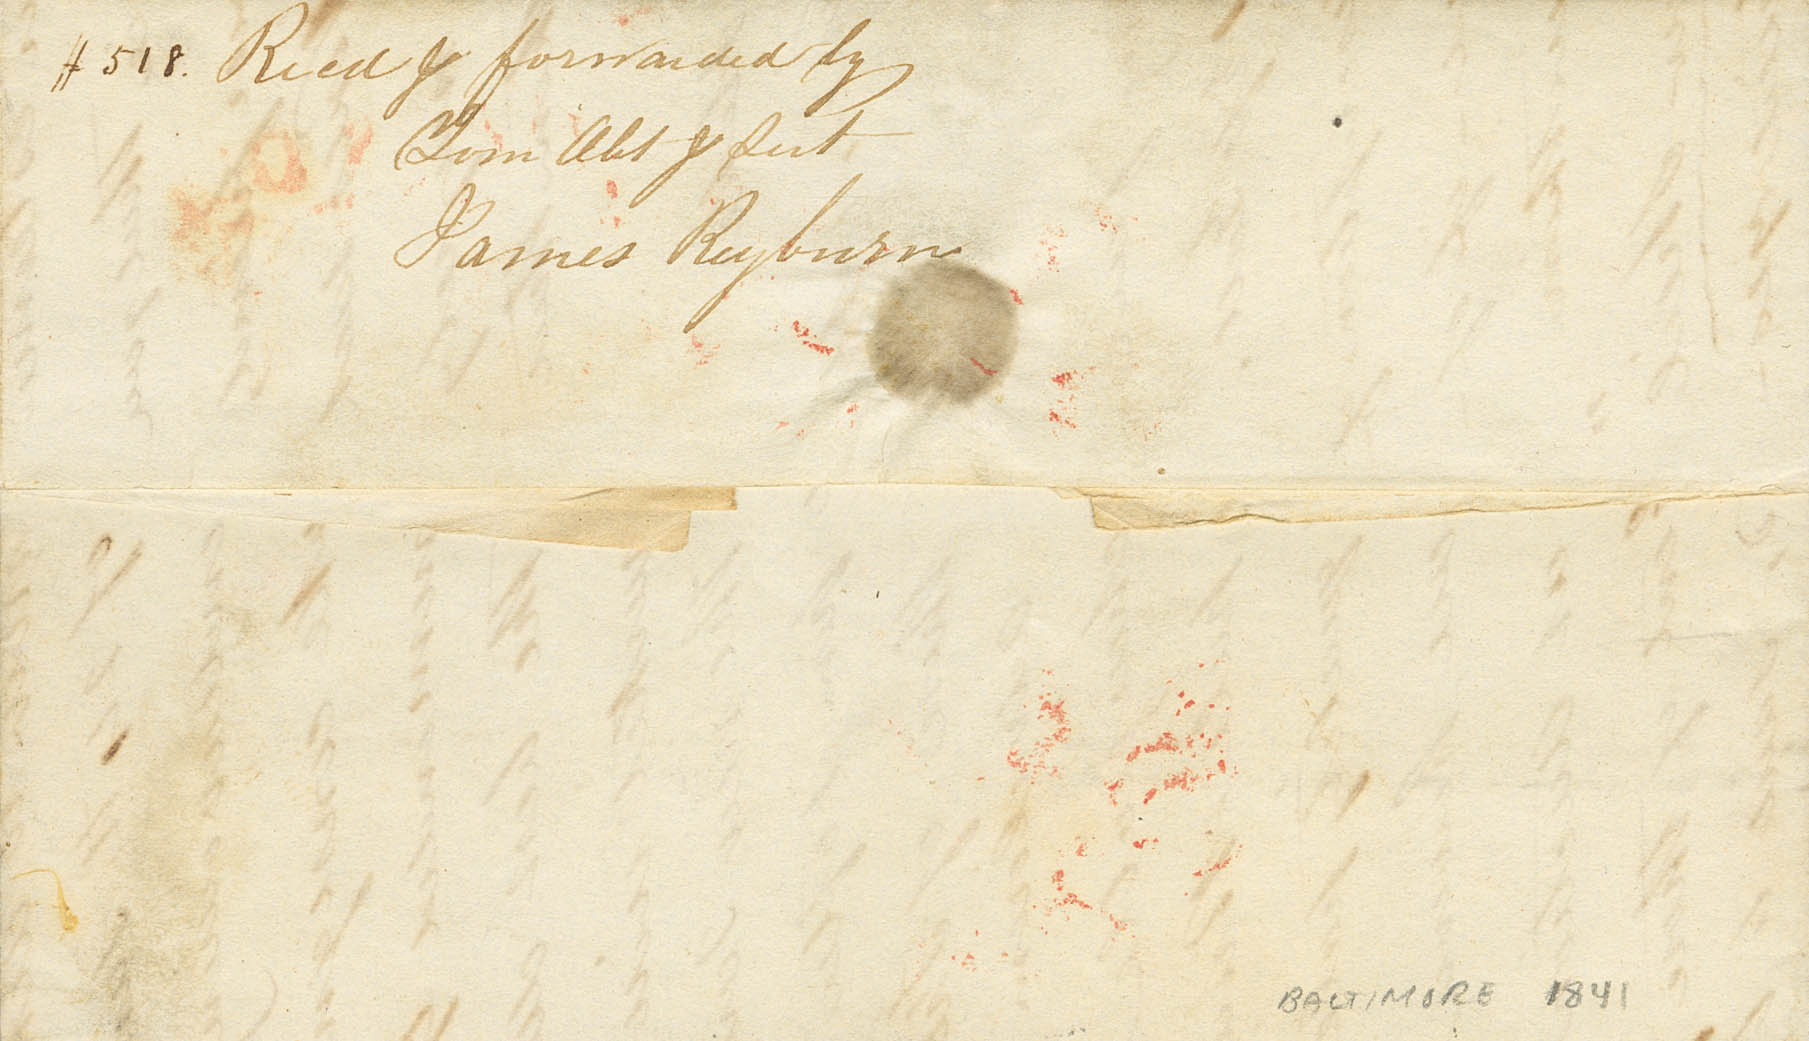 # 518. Recd & forwarded by
Your Obt & Sert
James Reyburn
BALTIMORE 1841